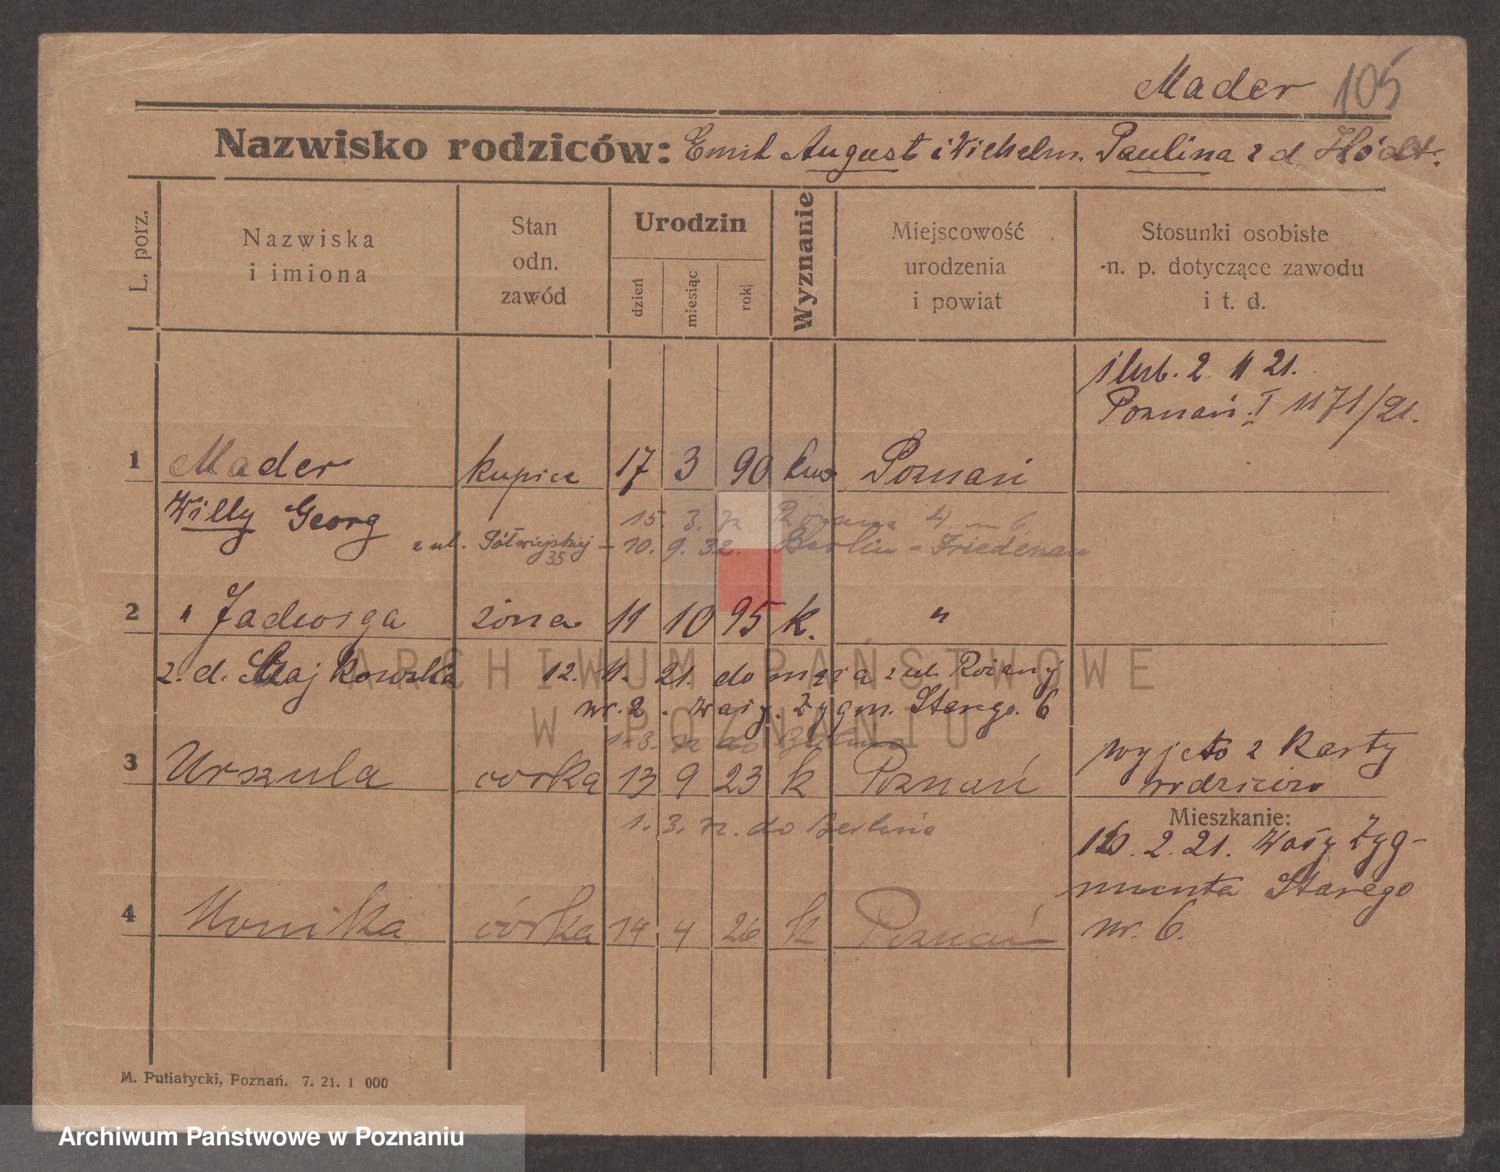 Mader 105
Nazwisko rodziców: Emil August i Wilhelm. Paulina z d.
L. porz.
Nazwiska
i imiona
Stan
odn.
zawód
Urodzin
dzień
miesiąc
rok
Wyznanie
Miejscowość
urodzenia
i powiat
Stosunki osobiste
n. p. dotyczące zawodu
i t. d.
ślub. 2. 4 21.
Poznań I 1171/21.
1 Mader kupiec 17 3 90 Poznań
Willy Georg
15. 3. Różana 4 m 6
z ul. Półwiejskiej 35 – 10. 9. 32. Berlin - Friedenau
2 " Jadwiga żona 11 10 95 k. "
z d. Majkowska 12. 4. 21. do męża z ul. Różanej
nr. 2. Wały Zygm. Starego. 6
1.3. do Berlina
3 Urszula córka 13 9 23 k Poznań
wyjęto z karty
rodziców
1. 3. do Berlina
Mieszkanie:
2. 21. Wały Zyg-
munta Starego
nr. 6.
4 Monika córka 14 4 26 k Poznań
M. Putiatycki, Poznań. 7. 21. 1 000
ARCHIWUM PAŃSTWOWE
W POZNANIU
Archiwum Państwowe w Poznaniu